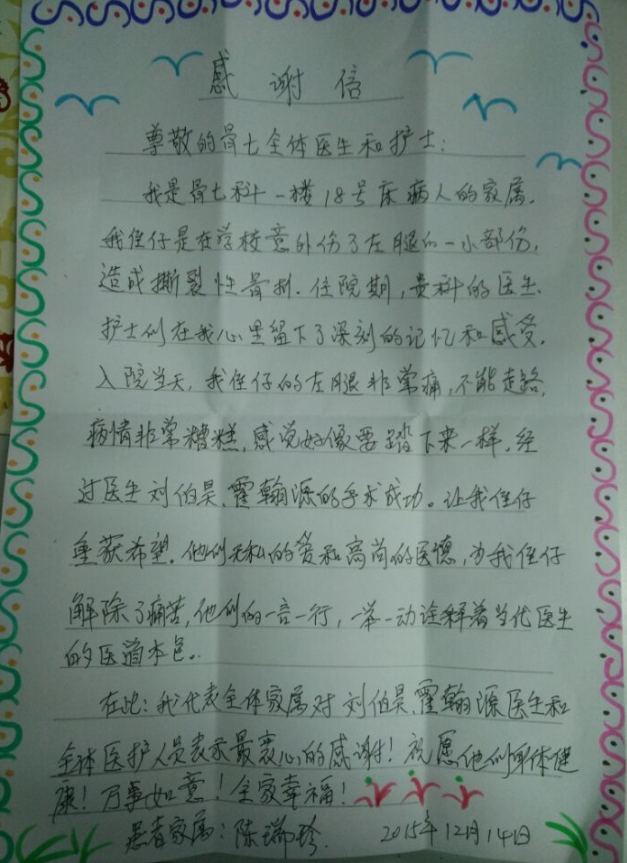 感谢信
尊敬的骨七全体医生和护士:
我是骨七科一楼18号床病人的家属,
我侄仔是在学校意外伤了左腿的一小部份,
造成撕裂性骨折.住院期,贵科的医生、
护士们在我心里留下了深刻的记忆和感受.
入院当天,我侄仔的左腿非常痛,不能走路,
病情非常糟糕,感觉好像要踏下来一样,经
过医生刘伯昊、霍翰源的手术成功。让我侄仔
重获希望.他们无私的爱和高尚的医德,为我侄仔
解除了痛苦,他们的一言一行,一举一动诠释着当代医生
的医道本色。
在此:我代表全体家属对刘伯昊、霍翰源医生和
全体医护人员表示最衷心的感谢!祝愿他们身体健
康!万事如意!全家幸福!
患者家属:陈瑞珍 2015年12月14日